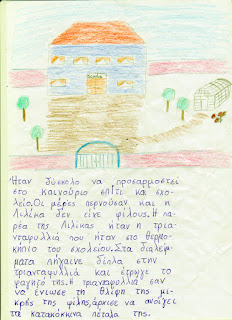 Ήταν δύσκολο να προσαρμοστεί
στο καινούριο σπίτι και σχο-
λείο. Οι μέρες περνούσαν και η
Λιλίκα δεν είχε φίλους. Η πα-
ρέα της Λιλίκας ήταν η τρι-
ανταφυλλιά που ήταν στο θερμο-
κήπιο του σχολείου. Στα διαλείμ-
ματα πήγαινε δίπλα στην
τριανταφυλλιά και έτρωγε το
φαγητό της. Η τριανταφυλλιά σαν
να ένιωσε τη θλίψη της μι-
κρής της φίλης, άρχισε να ανοίγει
τα κατακόκκινα πέταλα της.